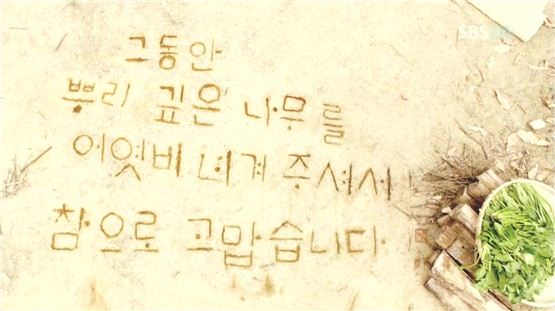 SBS
그동안
뿌리 깊은 나무를
어엿비 녀겨 주셔서
참으로 고맙습니다